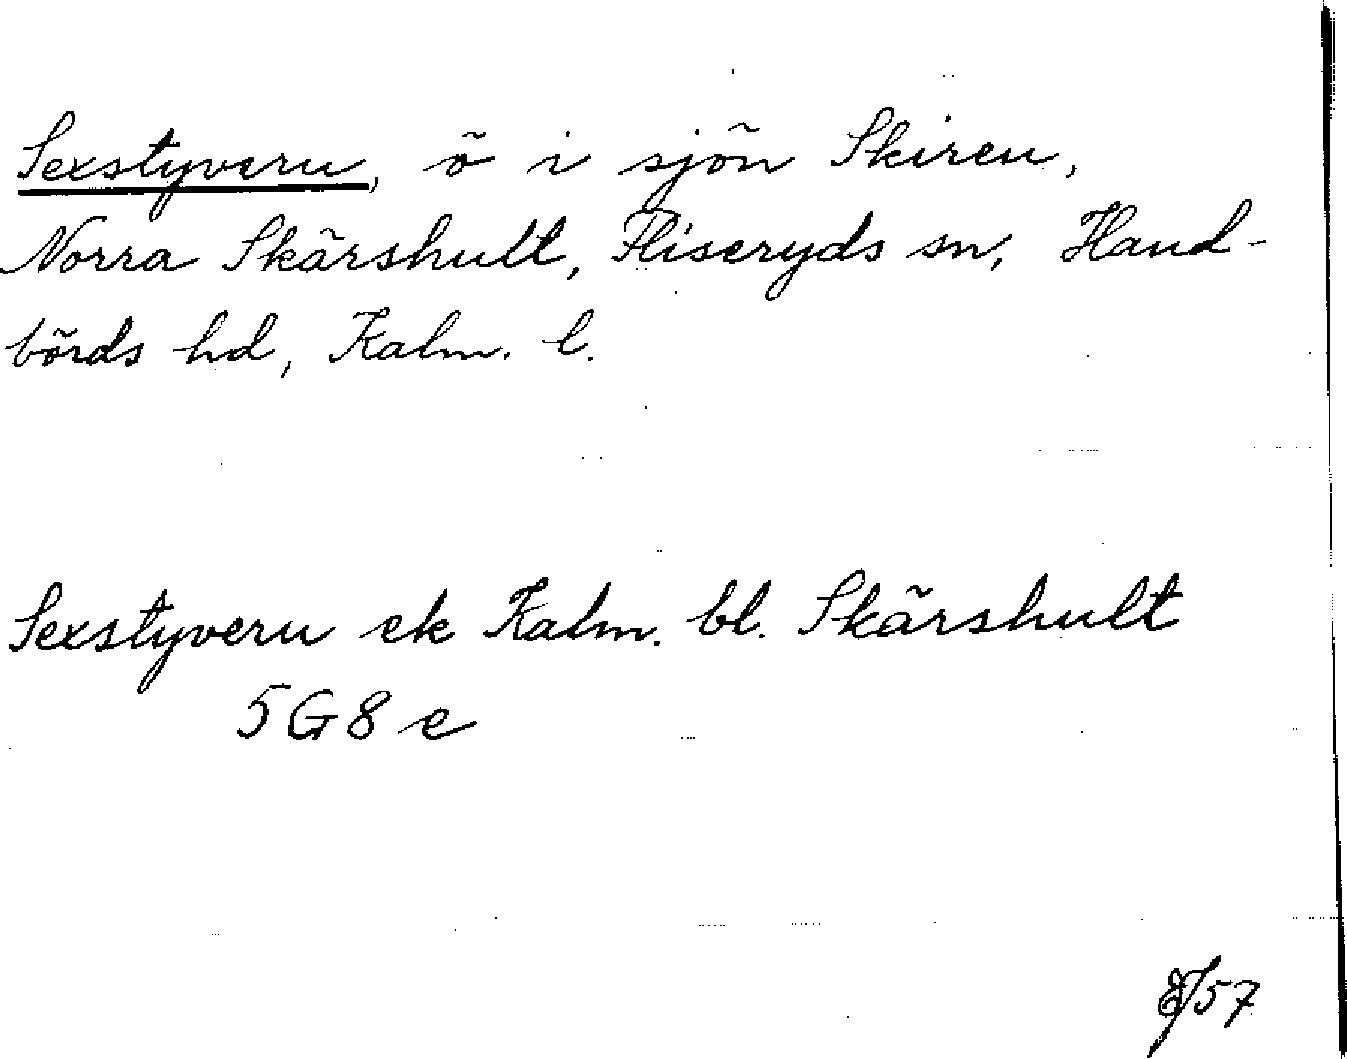 Sexstyveru, ö i sjön Skiren,
Norra Skärshult, Fliseryds sn, Hand-
börds hd, Kalm. l.
Sexstyveru ek Kalm. bl. Skärshult
5G8e
57